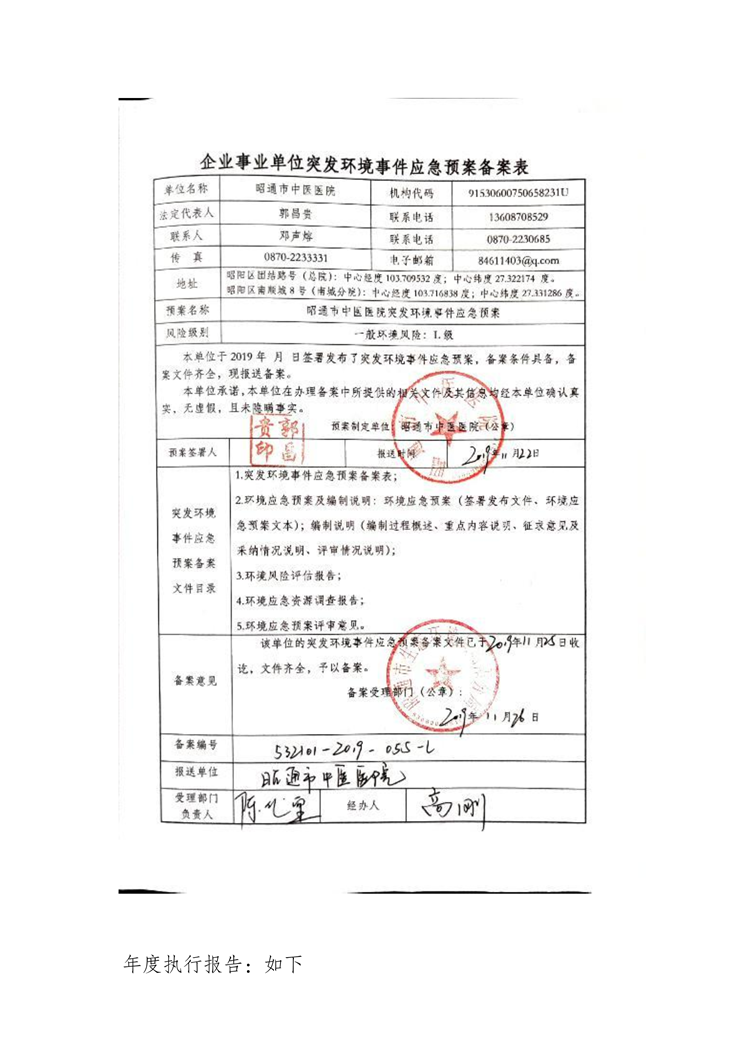 企业事业单位突发环境事件应急预案备案表
单位名称 昭通市中医医院 机构代码 91530600750658231U
法定代表人 郭昌贵 联系电话 13608708529
联系人 邓声熔 联系电话 0870-2230685
传 真 0870-2233331 电子邮箱 84611403@q.com
地址 昭阳区团结路号（总院）：中心经度 103.709532 度；中心纬度 27.322174 度。
昭阳区南顺城 8 号（南城分院）：中心经度 103.716838 度；中心纬度 27.331286 度。
预案名称 昭通市中医医院突发环境事件应急预案
风险级别 一般环境风险：L 级
本单位于 2019 年 月 日签署发布了突发环境事件应急预案，备案条件具备，备
案文件齐全，现报送备案。
本单位承诺，本单位在办理备案中所提供的相关文件及其信息均经本单位确认真
实，无虚假，且未隐瞒事实。
预案制定单位 昭通市中医医院（公章）
预案签署人 郭昌贵印 报送时间 2019年11月22日
突发环境
事件应急
预案备案
文件目录
1.突发环境事件应急预案备案表；
2.环境应急预案及编制说明：环境应急预案（签署发布文件、环境应
急预案文本）；编制说明（编制过程概述、重点内容说明、征求意见及
采纳情况说明、评审情况说明）；
3.环境风险评估报告；
4.环境应急资源调查报告；
5.环境应急预案评审意见。
备案意见
该单位的突发环境事件应急预案备案文件已于2019年11月25日收
讫，文件齐全，予以备案。
备案受理部门（公章）：
2019年11月26日
备案编号 532101-2019-055-L
报送单位 昭通市中医医院
受理部门
负责人
经办人 高刚
年度执行报告：如下